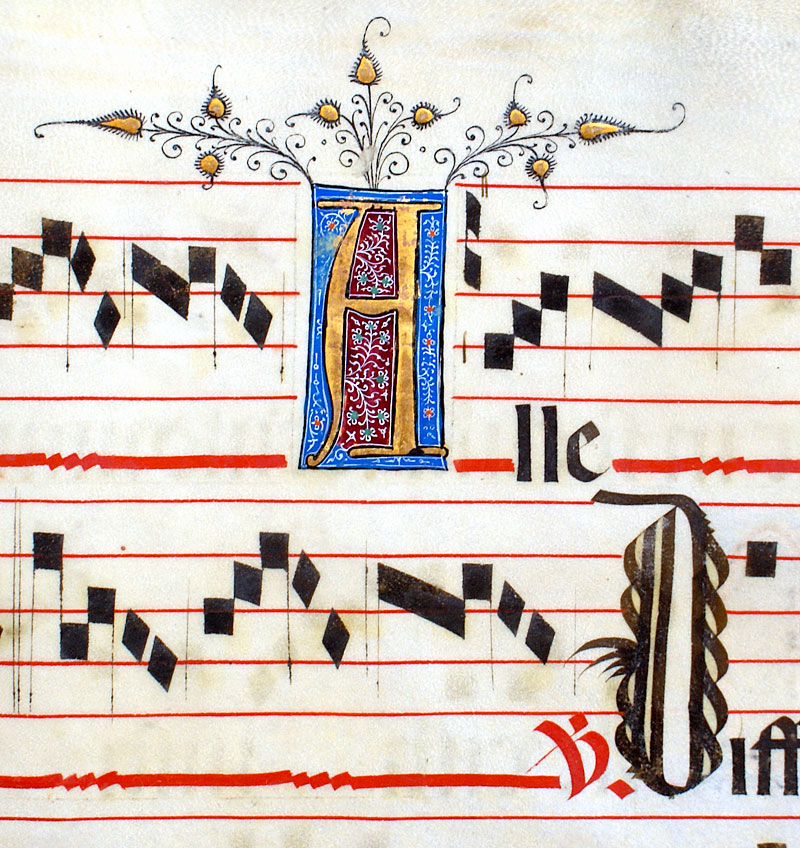 Alle
℣. Diff